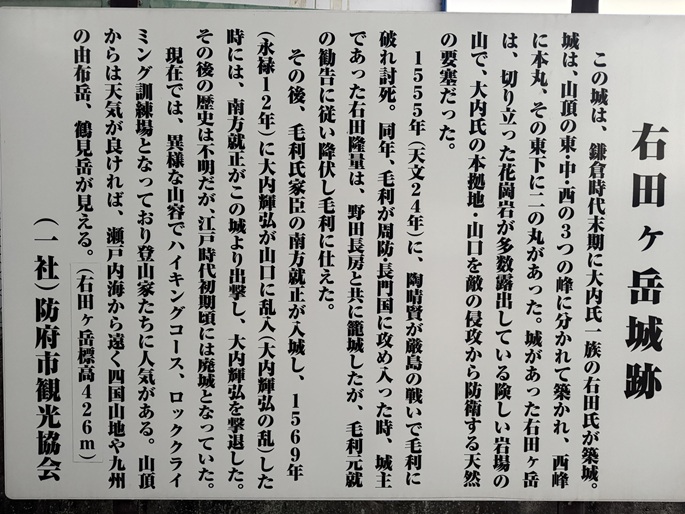 右田ヶ岳城跡
この城は、鎌倉時代末期に大内氏一族の右田氏が築城。
城は、山頂の東・中・西の3つの峰に分かれて築かれ、西峰
に本丸、その東下に二の丸があった。城があった右田ヶ岳
は、切り立った花崗岩が多数露出している険しい岩場の
山で、大内氏の本拠地・山口を敵の侵攻から防衛する天然
の要塞だった。
1555年（天文24年）に、陶晴賢が厳島の戦いで毛利に
破れ討死。同年、毛利が周防・長門国に攻め入った時、城主
であった右田隆量は、野田長房と共に籠城したが、毛利元就
の勧告に従い降伏し毛利に仕えた。
その後、毛利氏家臣の南方就正が入城し、1569年
（永禄12年）に大内輝弘が山口に乱入（大内輝弘の乱）した
時には、南方就正がこの城より出撃し、大内輝弘を撃退した。
その後の歴史は不明だが、江戸時代初期頃には廃城となっていた。
現在では、異様な山容でハイキングコース、ロッククライ
ミング訓練場となっており登山家たちに人気がある。山頂
からは天気が良ければ、瀬戸内海から遠く四国山地や九州
の由布岳、鶴見岳が見える。（右田ヶ岳標高426m）
（一社）防府市観光協会